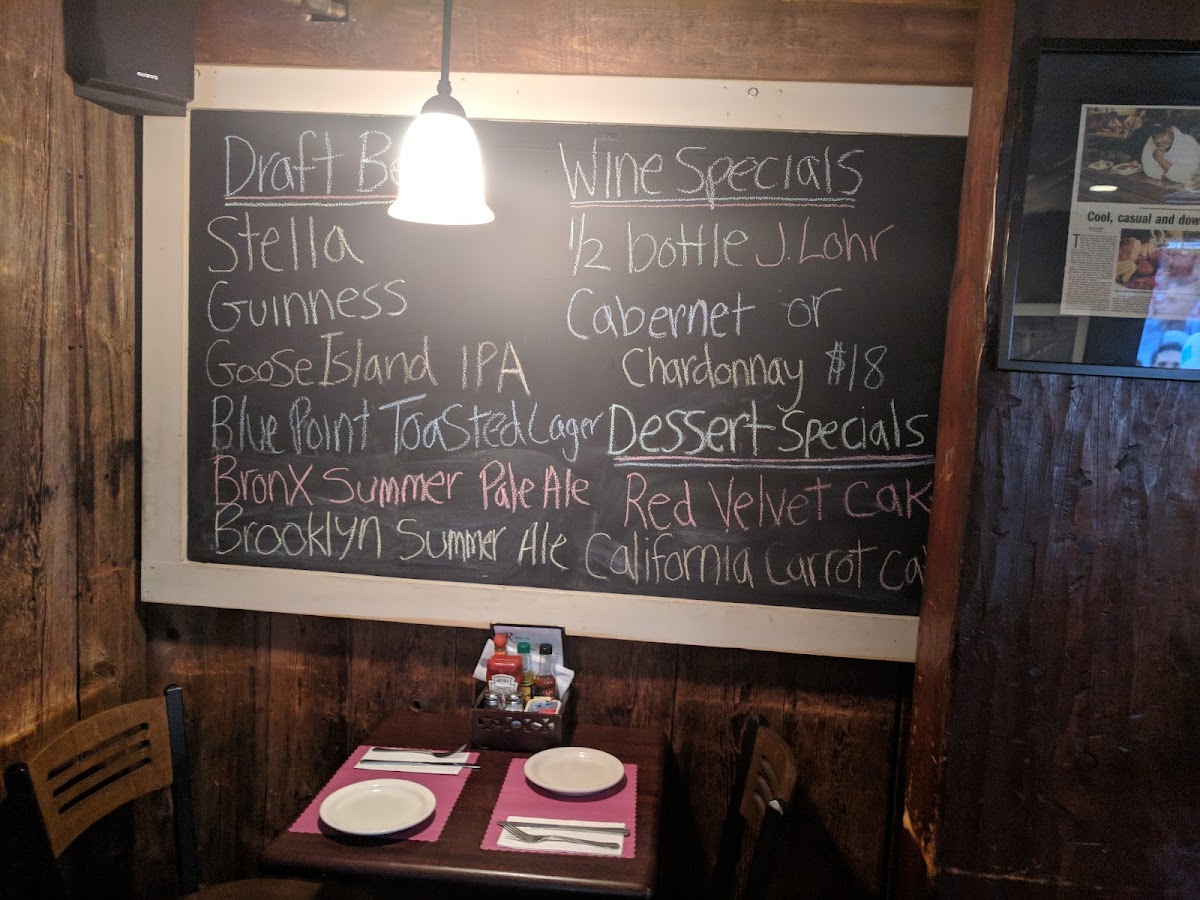 Draft Be
Stella
Guinness
Goose Island IPA
Blue Point Toasted Lager
Bronx Summer Pale Ale
Brooklyn Summer Ale
Wine Specials
1/2 bottle J. Lohr
Cabernet or
Chardonnay $18
Dessert Specials
Red Velvet Cak
California Carrot Ca
Cool, casual and dow
HEINZ